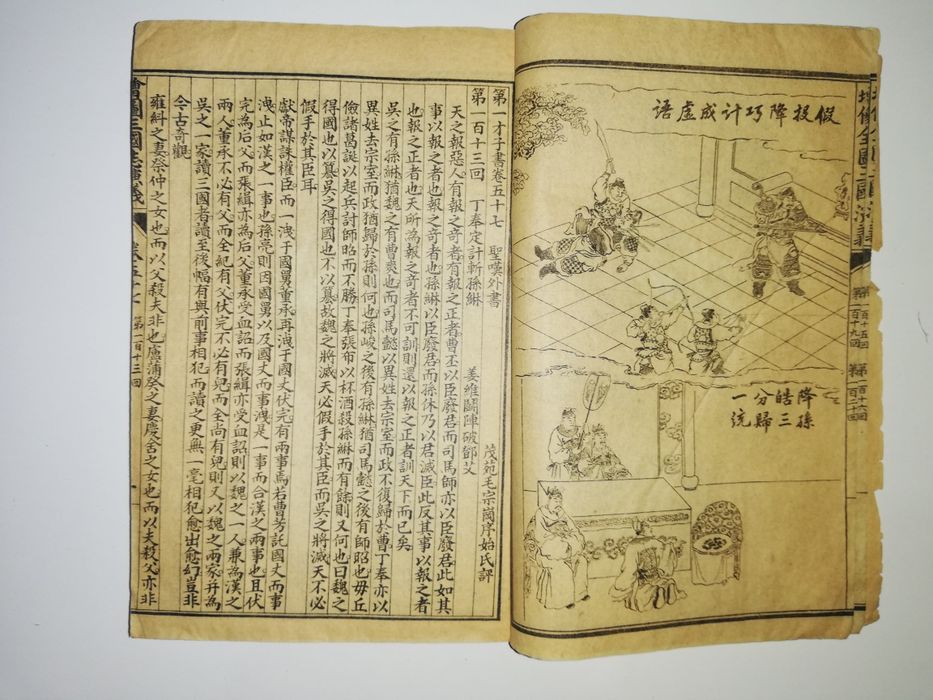 增像全圖三國演義
第一百十五回 第一百十六回
第一百十九回 第一百二十回
假投降巧計成虛語
降孫
皓三
分歸
一統
第一才子書卷五十七 聖嘆外書 茂苑毛宗崗序始氏評
第一百十三回 丁奉定計斬孫綝 姜維鬭陣破鄧艾
天之報惡人有報之奇者有報之正者曹丕以臣廢君而司馬師亦以臣廢君此如其
事以報之者也報之奇者也孫綝以臣廢君而孫休乃以君滅臣此反其事以報之者
也報之正者也天所為報之奇者不可訓則還以報之正者訓天下而已矣
吳之有孫綝猶魏之有曹爽也而司馬懿以異姓去宗室而政不復歸於曹丁奉亦以
異姓去宗室而政猶歸於孫則何也孫峻之後有孫綝猶司馬懿之後有師昭也毋丘
儉諸葛誕以起兵討師昭而不勝丁奉張布以杯酒殺孫綝而有餘則又何也曰魏之
得國也以篡吳之得國也不以篡故魏之將滅天必假手於其臣而吳之將滅天不必
假手於其臣耳
獻帝謀誅權臣而一洩于國舅董承再洩于國丈伏完有兩事焉若曹芳託國丈而事
洩止如漢之一事也孫亮則因國舅以及國丈而事洩是一事而合漢之兩事也且伏
完為后父而張緝亦為后父董承受血詔而張緝亦受血詔則以魏之一人兼為漢之
兩人董承不必有父而全紀有父伏完不必有兒而全尚有兒則又以魏之兩家并為
吳之一家讀三國者讀至後幅有與前事相犯而讀之更無一毫相犯愈出愈幻豈非
今古奇觀
雍糾之妻祭仲之女也而以父殺夫非也盧蒲癸之妻慶舍之女也而以夫殺父亦非
繪圖三國志演義 卷五十七 第一百十三回 一